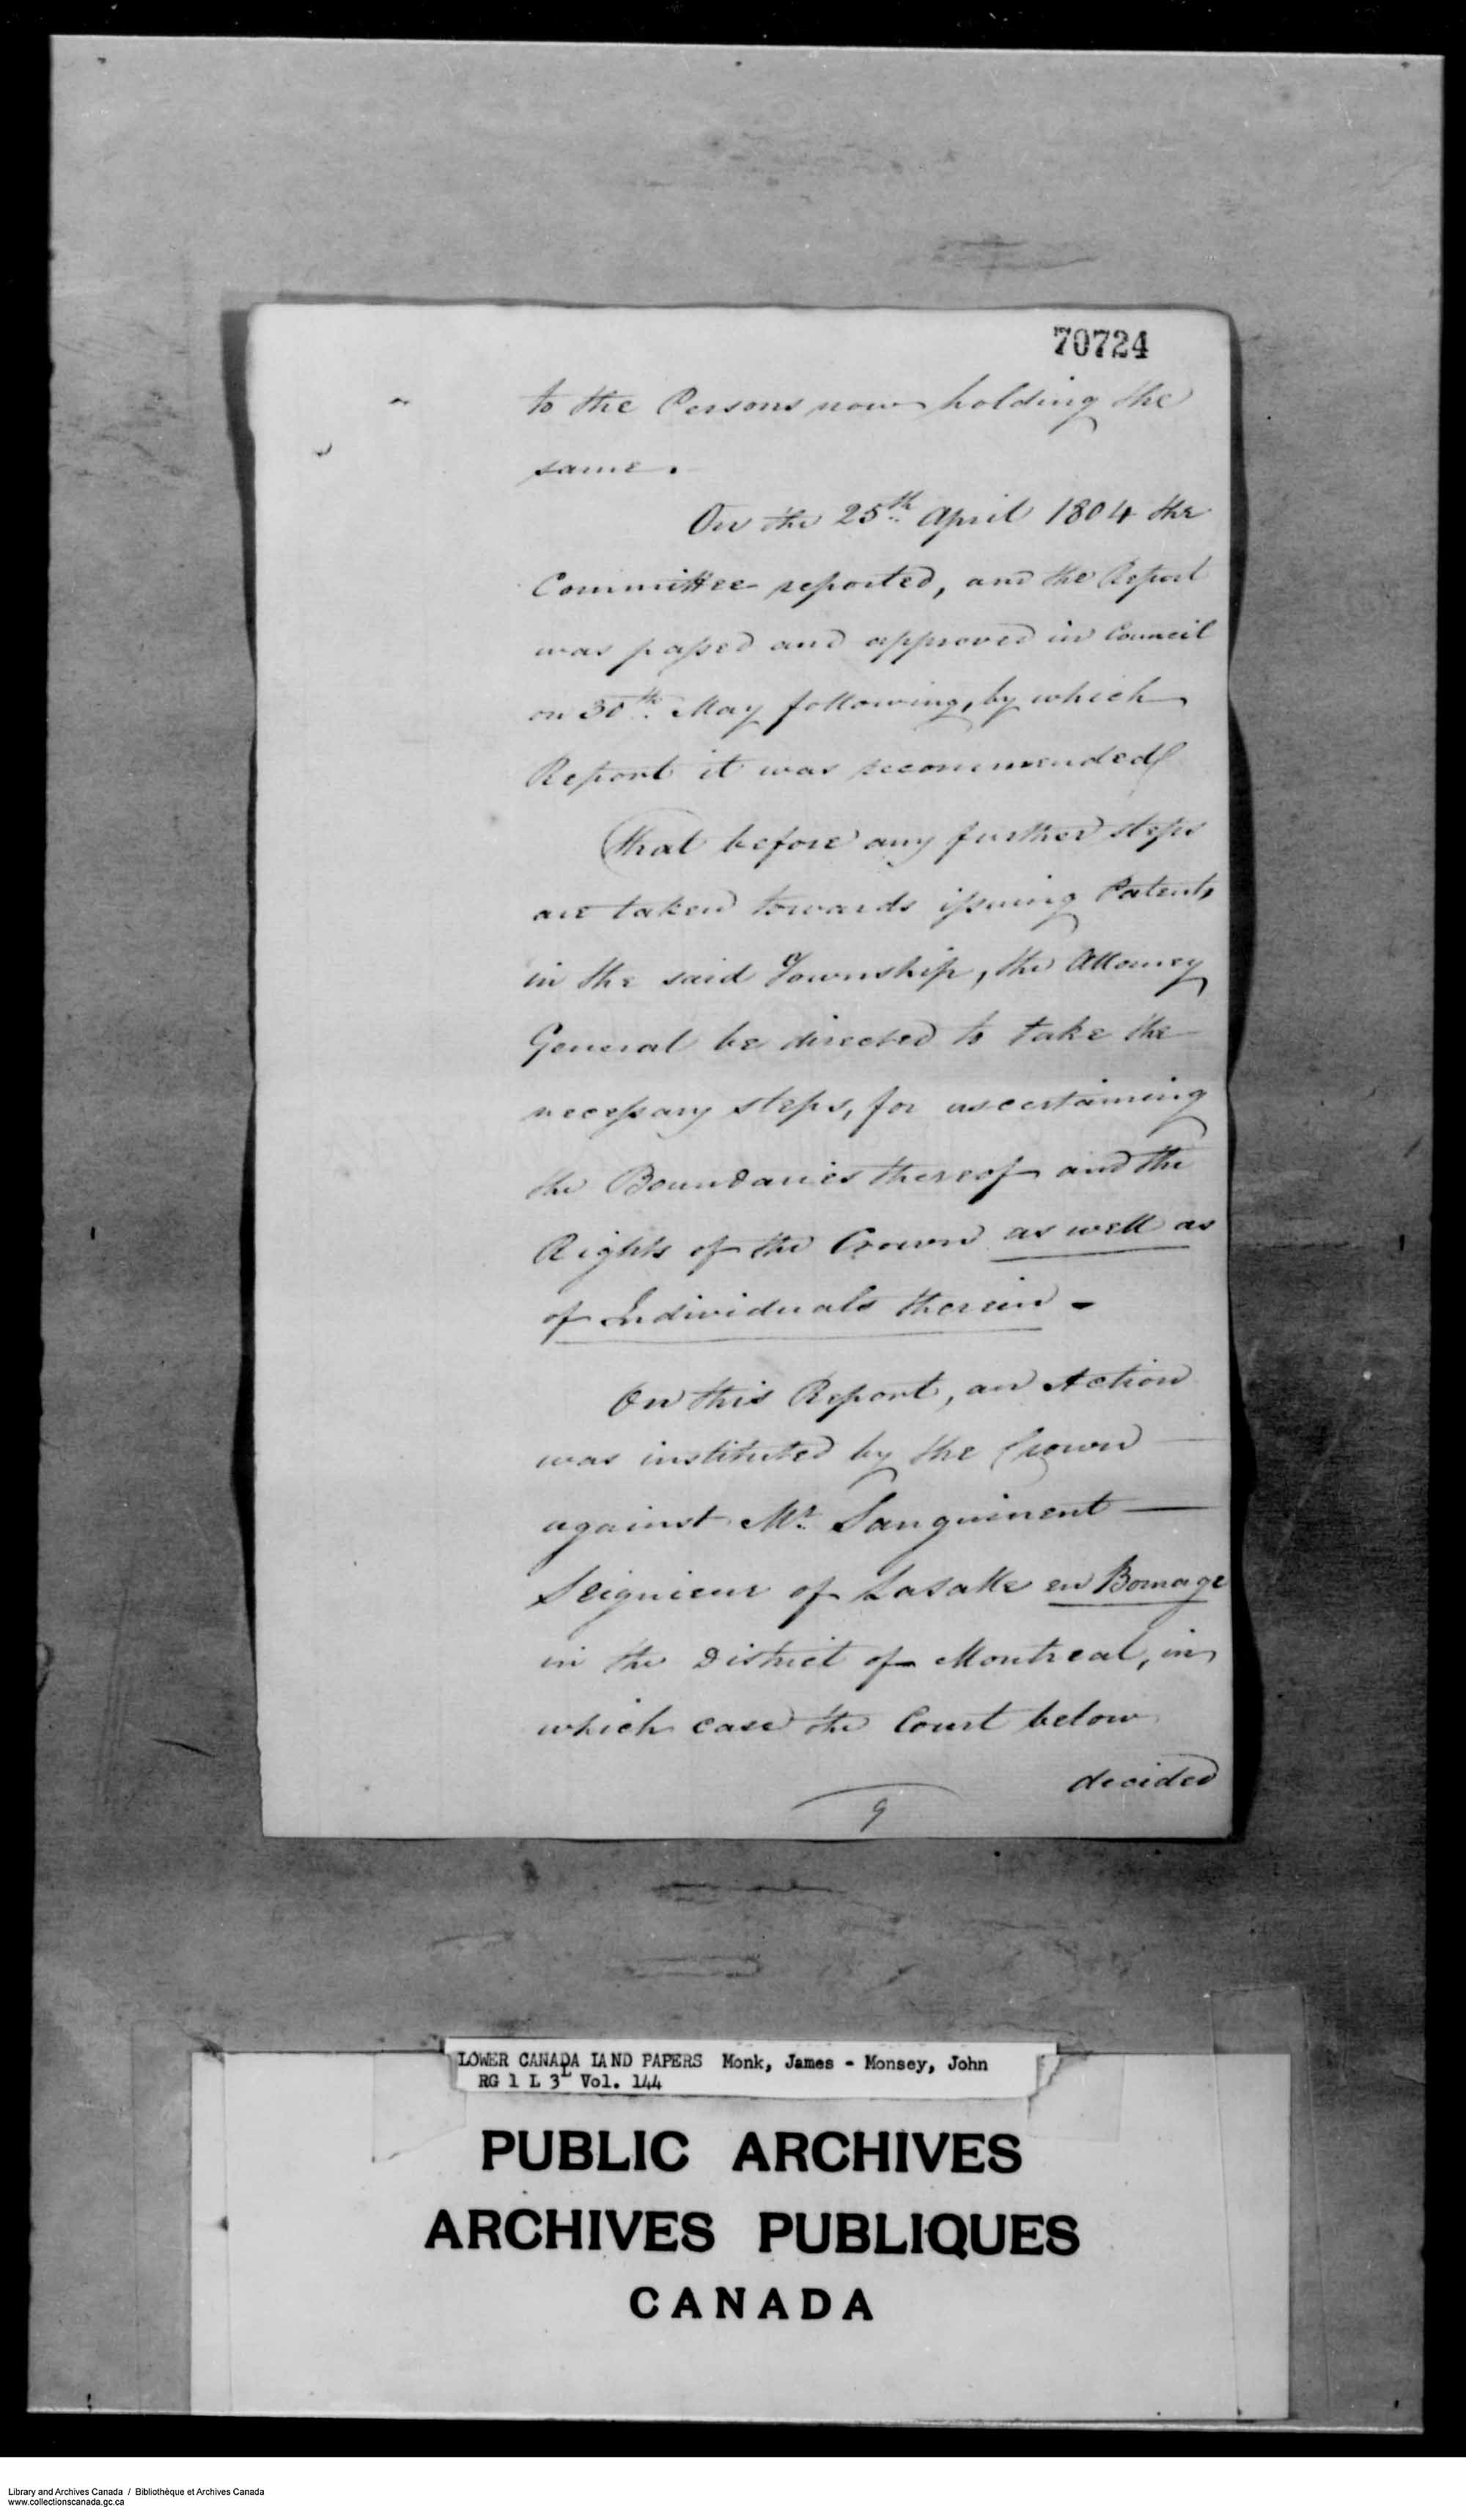 70724
to the Persons now holding the
same.
On the 25th April 1804 the
Committee reported, and the Report
was passed and approved in Council
on 30th May following, by which
Report it was recommended
That before any further steps
are taken towards issuing Patents
in the said Township, the Attorney
General be directed to take the
necessary steps, for ascertaining
the Boundaries thereof and the
Rights of the Crown as well as
of Individuals therein -
On this Report, an Action
was instituted by the Crown
against Mr. Sanguinent
Seignieur of LaSalle en Bornage
in the District of Montreal, in
which case the Court below
decided
9
LOWER CANADA LAND PAPERS Monk, James - Monsey, John
RG 1 L 3L Vol. 144
PUBLIC ARCHIVES
ARCHIVES PUBLIQUES
CANADA
Library and Archives Canada / Bibliothèque et Archives Canada
www.collectionscanada.gc.ca